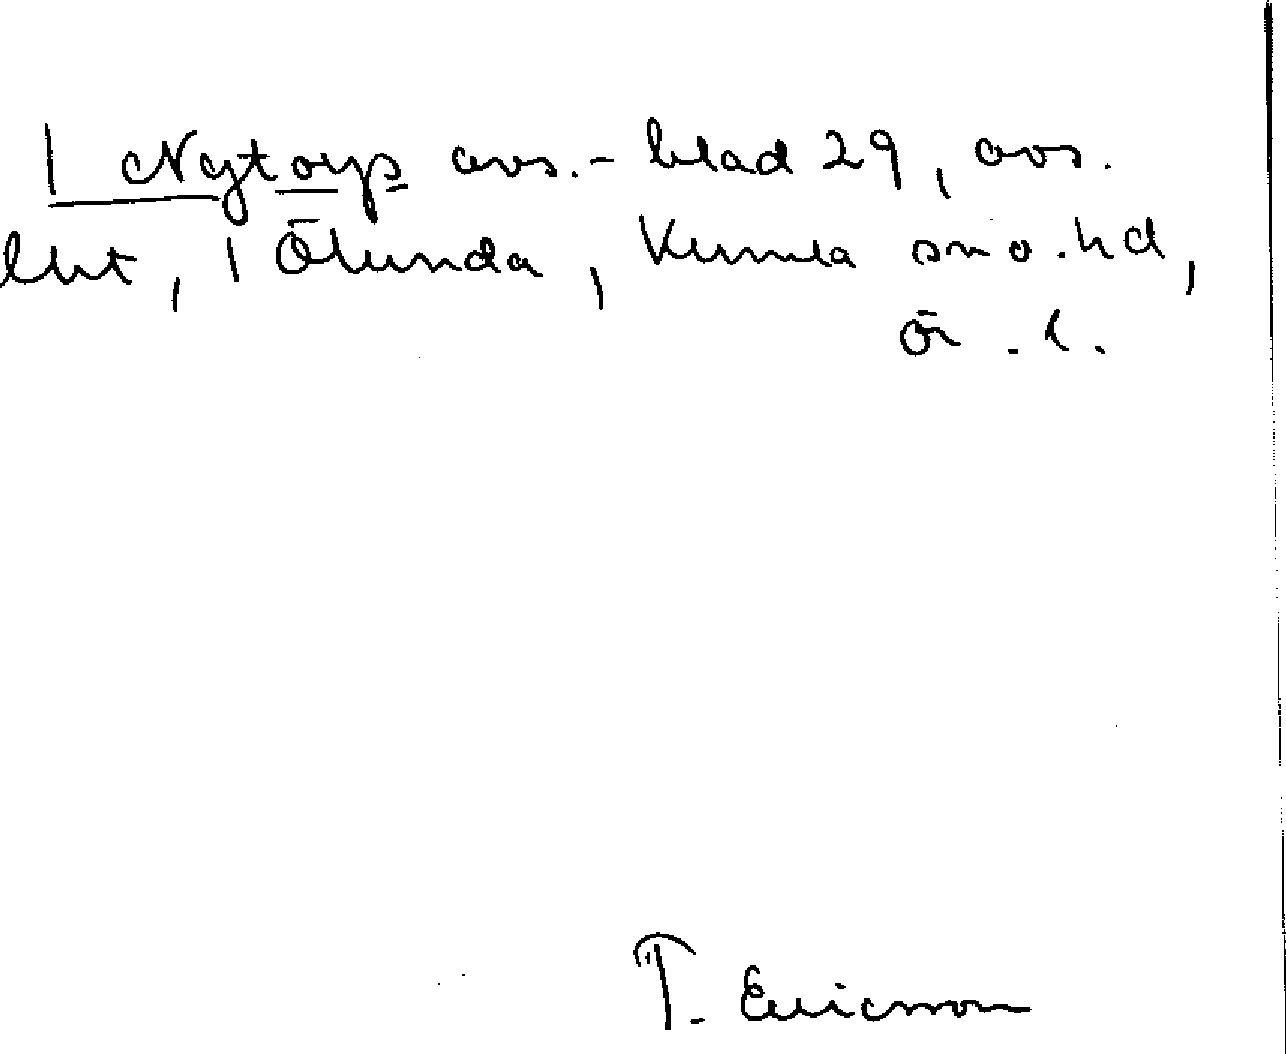 1 Nytorp avs. - blad 29, avs.
1 Ölunda, Kumla sn o. hd,
Ör. l.
T. Ericsson